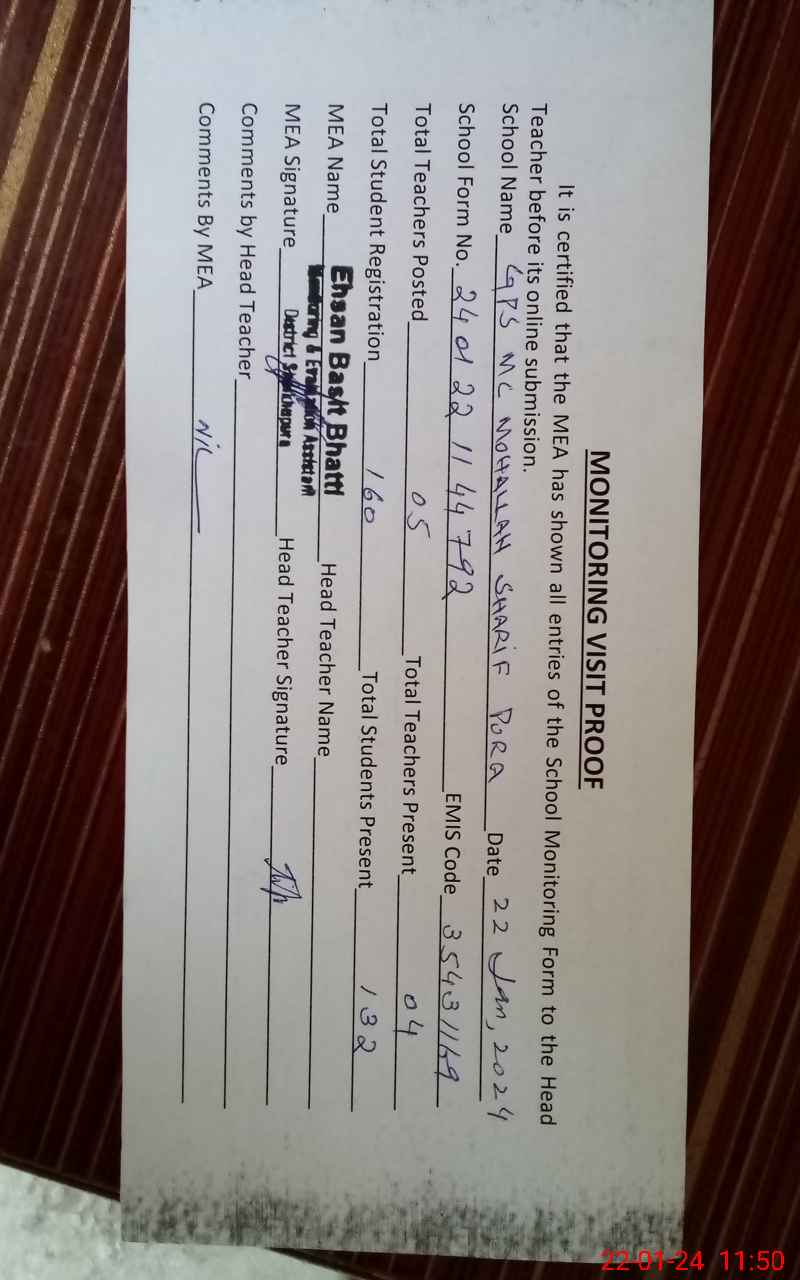 MONITORING VISIT PROOF
It is certified that the MEA has shown all entries of the School Monitoring Form to the Head
Teacher before its online submission.
School Name GPS MC MOHALLAH SHARIF PURA Date 22 Jan, 2024
School Form No. 24012211 44792 EMIS Code 35431169
Total Teachers Posted 05 Total Teachers Present 04
Total Student Registration 160 Total Students Present 132
MEA Name Ehsan Basit Bhatti Head Teacher Name
Monitoring & Evaluation Assistant
MEA Signature District Head Teacher Signature
Comments by Head Teacher
Comments By MEA Nil
22-01-24 11:50